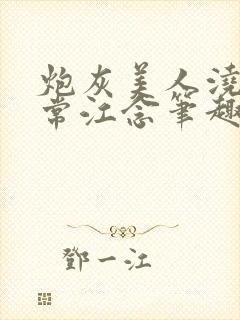 炮灰美人澆
常江念筆趣
鄧一江